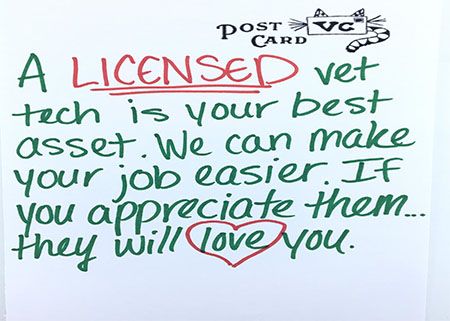 POST
CARD
VC
A LICENSED vet
tech is your best
asset. We can make
your job easier. If
you appreciate them...
they will love you.